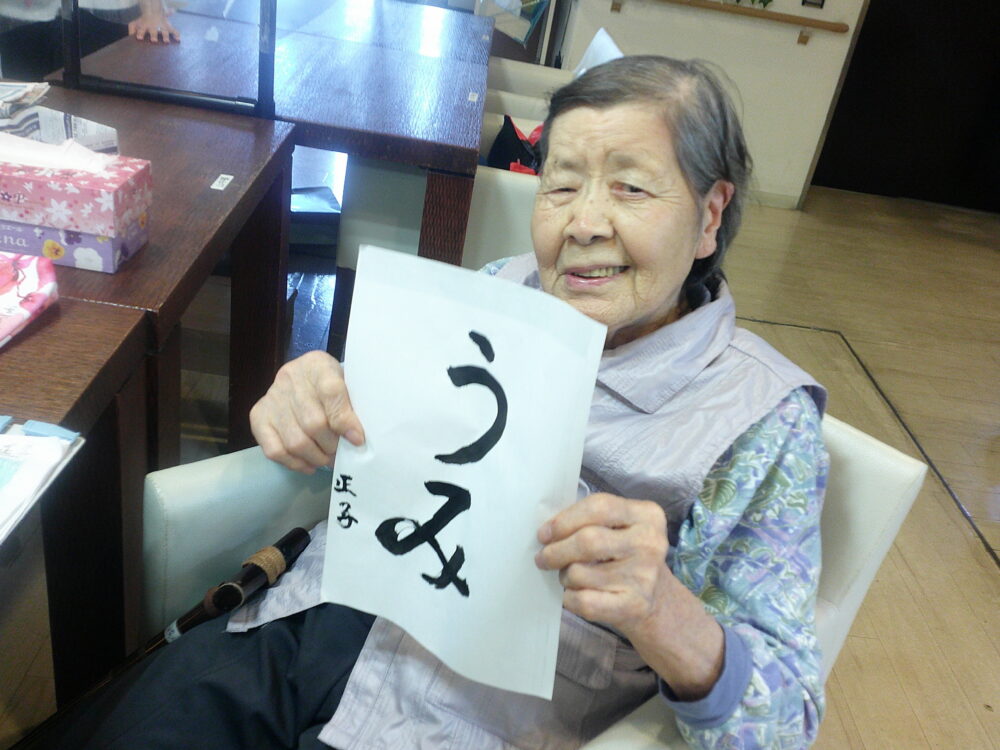 うみ
正子
ana